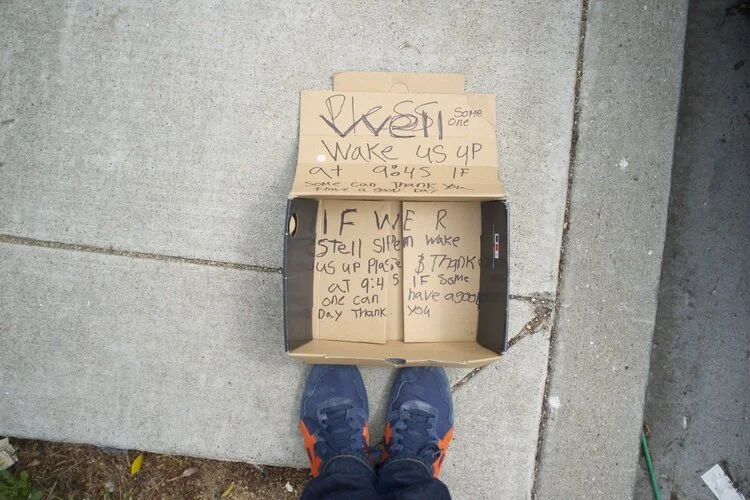 Well Some
one
Wake us up
at 9:45 IF
Some can Thank You
Have a Good Day
IF WE R
Stell Slpen Wake
us up Plase $ Thank
aT 9:45 IF Some
one can have a good
Day Thank You